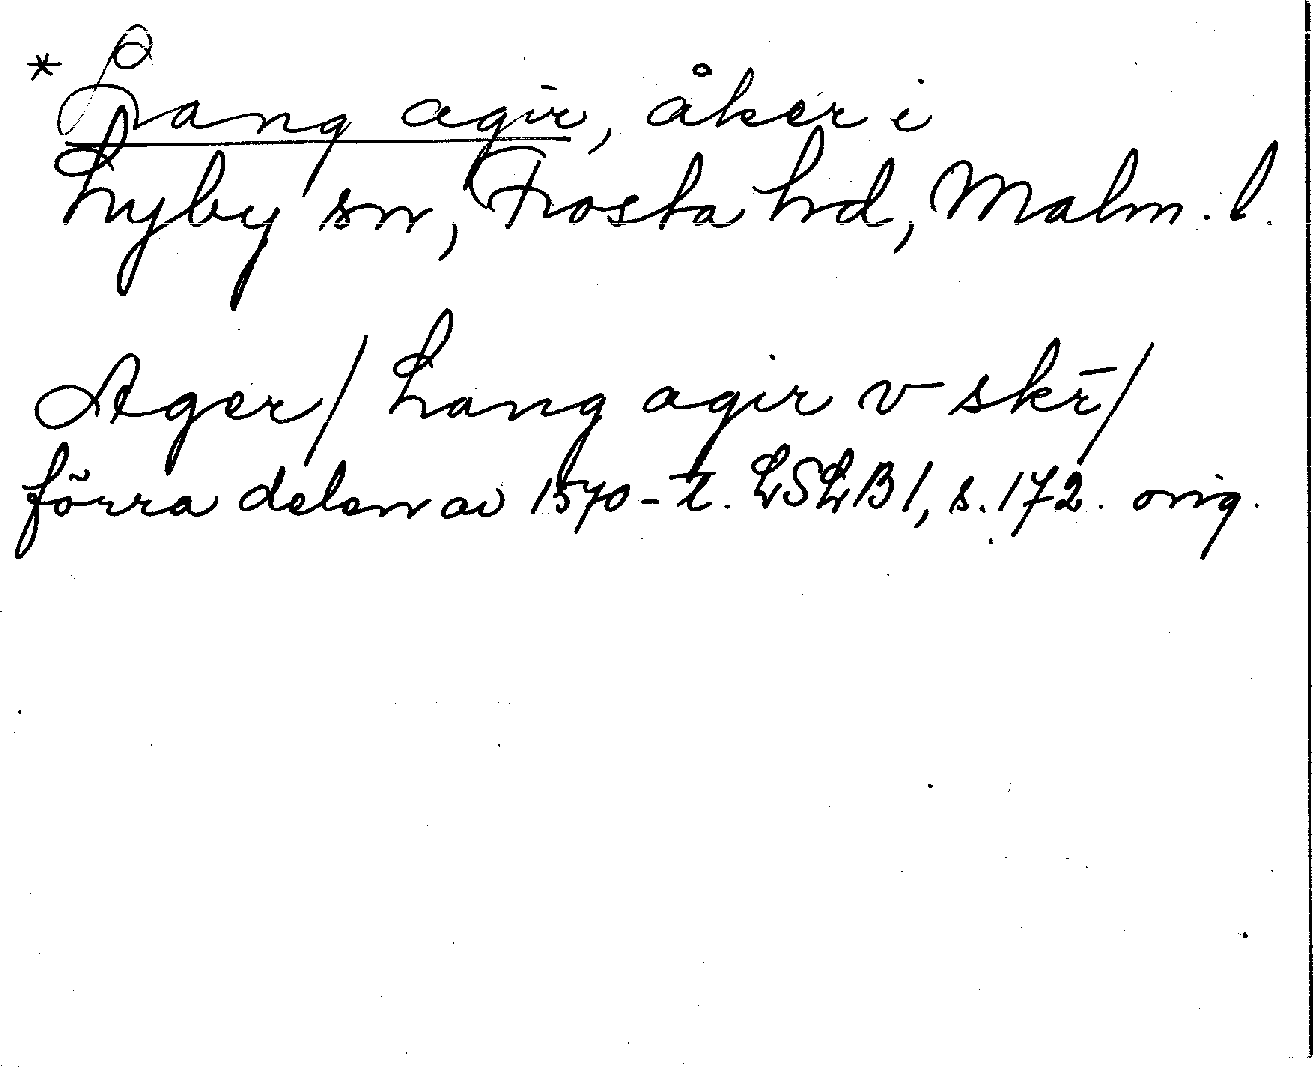 *Lang agir, åker i
Lyby sn, Frosta hd, Malm. l.
Ager/ Lang agir v skr/
förra delen av 1570-t. LSLB 1, s. 172. orig.